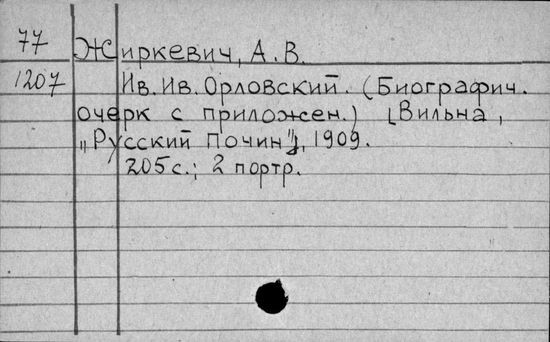 77 Жиркевич, А. В.
1207 Ив. Ив. Орловский. (Биографич.
очерк с приложен.) [Вильна,
„Русский Почин"], 1909.
205 с.; 2 портр.